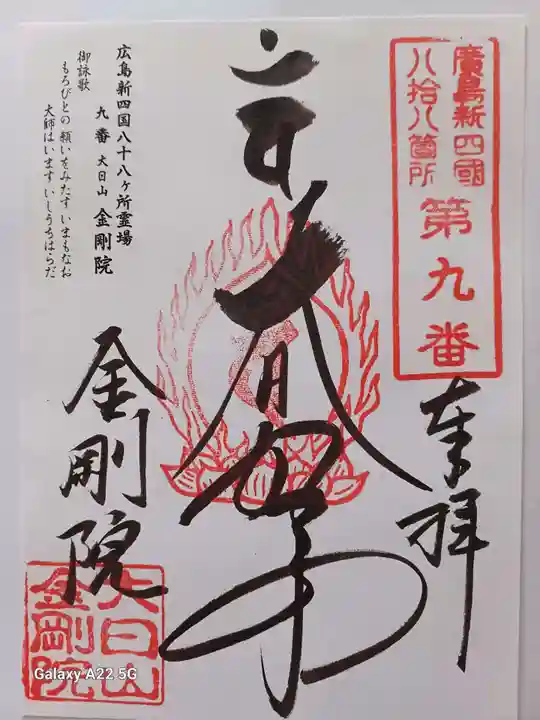 廣島新四國
八拾八箇所
第九番
奉拝
大日如来
広島新四国八十八ヶ所霊場
九番 大日山 金剛院
御詠歌
もろびとの 願いをみたす いまもなお
大師はいます いしうちはらだ
金剛院
大日山
金剛院
Galaxy A22 5G